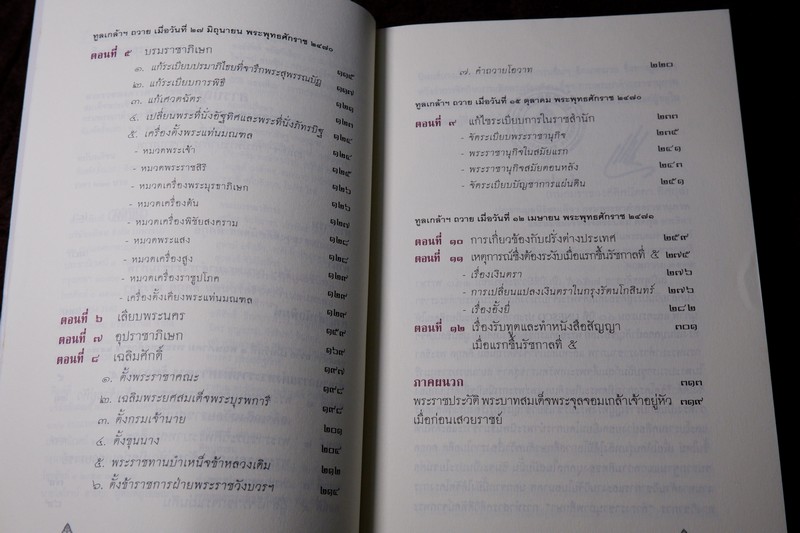 ทูลเกล้าฯ ถวาย เมื่อวันที่ ๒๗ มิถุนายน พระพุทธศักราช ๒๔๗๐
ตอนที่ ๕ บรมราชาภิเษก
๑. แก้ระเบียบปรมาภิไธยที่จารึกพระสุพรรณบัฏ ๑๑๕
๒. แก้ระเบียบการพิธี ๑๑๗
๓. แก้เศวตฉัตร ๑๒๑
๔. เปลี่ยนพระที่นั่งอัฐทิศและพระที่นั่งภัทรบิฐ ๑๒๔
๕. เครื่องตั้งพระแท่นมณฑล ๑๒๔
- หมวดพระเจ้า ๑๒๔
- หมวดพระราชสิริ ๑๒๕
- หมวดเครื่องพระมุรธาภิเษก ๑๒๖
- หมวดเครื่องต้น ๑๒๖
- หมวดเครื่องพิชัยสงคราม ๑๒๗
- หมวดพระแสง ๑๒๘
- หมวดเครื่องสูง ๑๒๘
- หมวดเครื่องราชูปโภค ๑๒๙
- เครื่องตั้งเคียงพระแท่นมณฑล ๑๒๙
ตอนที่ ๖ เลียบพระนคร ๑๒๙
ตอนที่ ๗ อุปราชาภิเษก ๑๕๙
ตอนที่ ๘ เฉลิมศักดิ์ ๑๖๙
๑. ตั้งพระราชาคณะ ๑๙๗
๒. เฉลิมพระยศสมเด็จพระบุรพการี ๑๙๘
๓. ตั้งกรมเจ้านาย ๒๐๑
๔. ตั้งขุนนาง ๒๐๔
๕. พระราชทานบำเหน็จข้าหลวงเดิม ๒๑๒
๖. ตั้งข้าราชการฝ่ายพระราชวังบวรฯ ๒๑๔
๗. คำถวายโอวาท ๒๒๓
ทูลเกล้าฯ ถวาย เมื่อวันที่ ๑๕ ตุลาคม พระพุทธศักราช ๒๔๗๐
ตอนที่ ๙ แก้ไขระเบียบการในราชสำนัก ๒๓๓
- จัดระเบียบพระราชานุกิจ ๒๓๕
- พระราชานุกิจในสมัยแรก ๒๔๑
- พระราชานุกิจสมัยตอนหลัง ๒๔๓
- จัดระเบียบบัญชาการแผ่นดิน ๒๕๑
ทูลเกล้าฯ ถวาย เมื่อวันที่ ๑๒ เมษายน พระพุทธศักราช ๒๔๗๑
ตอนที่ ๑๐ การเกี่ยวข้องกับฝรั่งต่างประเทศ ๒๕๙
ตอนที่ ๑๑ เหตุการณ์ซึ่งต้องระงับเมื่อแรกขึ้นรัชกาลที่ ๕ ๒๗๕
- เรื่องเงินตรา ๒๗๖
- การเปลี่ยนแปลงเงินตราในกรุงรัตนโกสินทร์ ๒๗๖
- เรื่องยั้งยี่ ๒๘๒
ตาคนที่ ๑๒ เรื่องรับทูตและทำหนังสือสัญญา ๓๐๑
เมื่อแรกขึ้นรัชกาลที่ ๕
ภาคผนวก ๓๑๓
พระราชประวัติ พระบาทสมเด็จพระจุลจอมเกล้าเจ้าอยู่หัว ๓๑๙
เมื่อก่อนเสวยราชย์